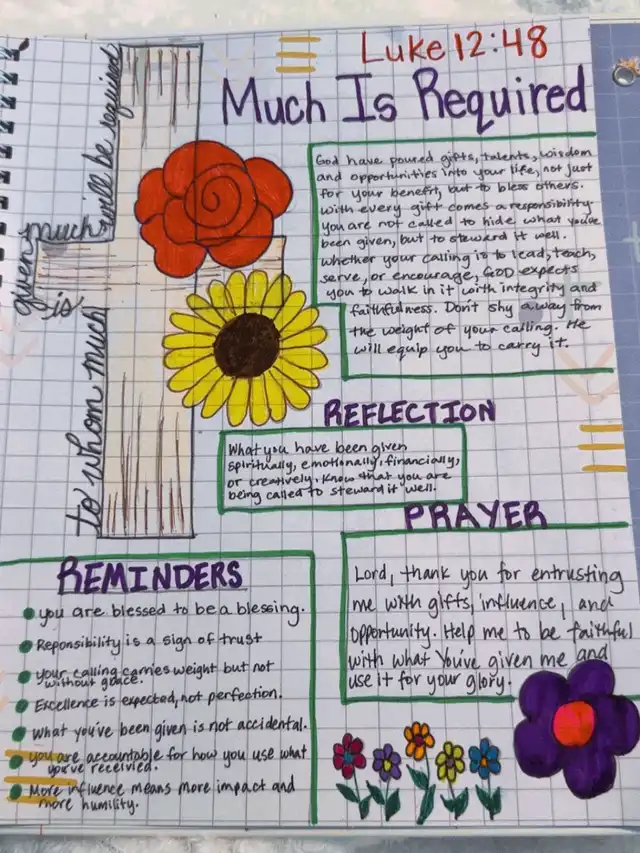 Luke 12:48
Much Is Required
to whom much
is
given
much
will be required
God have poured gifts, talents, wisdom
and opportunities into your life, not just
for your benefit, but to bless others.
With every gift comes a responsibility.
You are not called to hide what you've
been given, but to steward it well.
Whether your calling is to lead, teach,
serve, or encourage, GOD expects
you to walk in it with integrity and
faithfulness. Don't shy away from
the weight of your calling. He
will equip you to carry it.
REFLECTION
What you have been given
spiritually, emotionally, financially,
or creatively. Know that you are
being called to steward it well.
PRAYER
Lord, thank you for entrusting
me with gifts, influence, and
opportunity. Help me to be faithful
with what You've given me and
use it for your glory.
REMINDERS
you are blessed to be a blessing.
Reponsibility is a sign of trust
your calling carries weight but not
without grace.
Excellence is expected, not perfection.
What you've been given is not accidental.
you are accountable for how you use what
you've receivied.
More influence means more impact and
more humility.